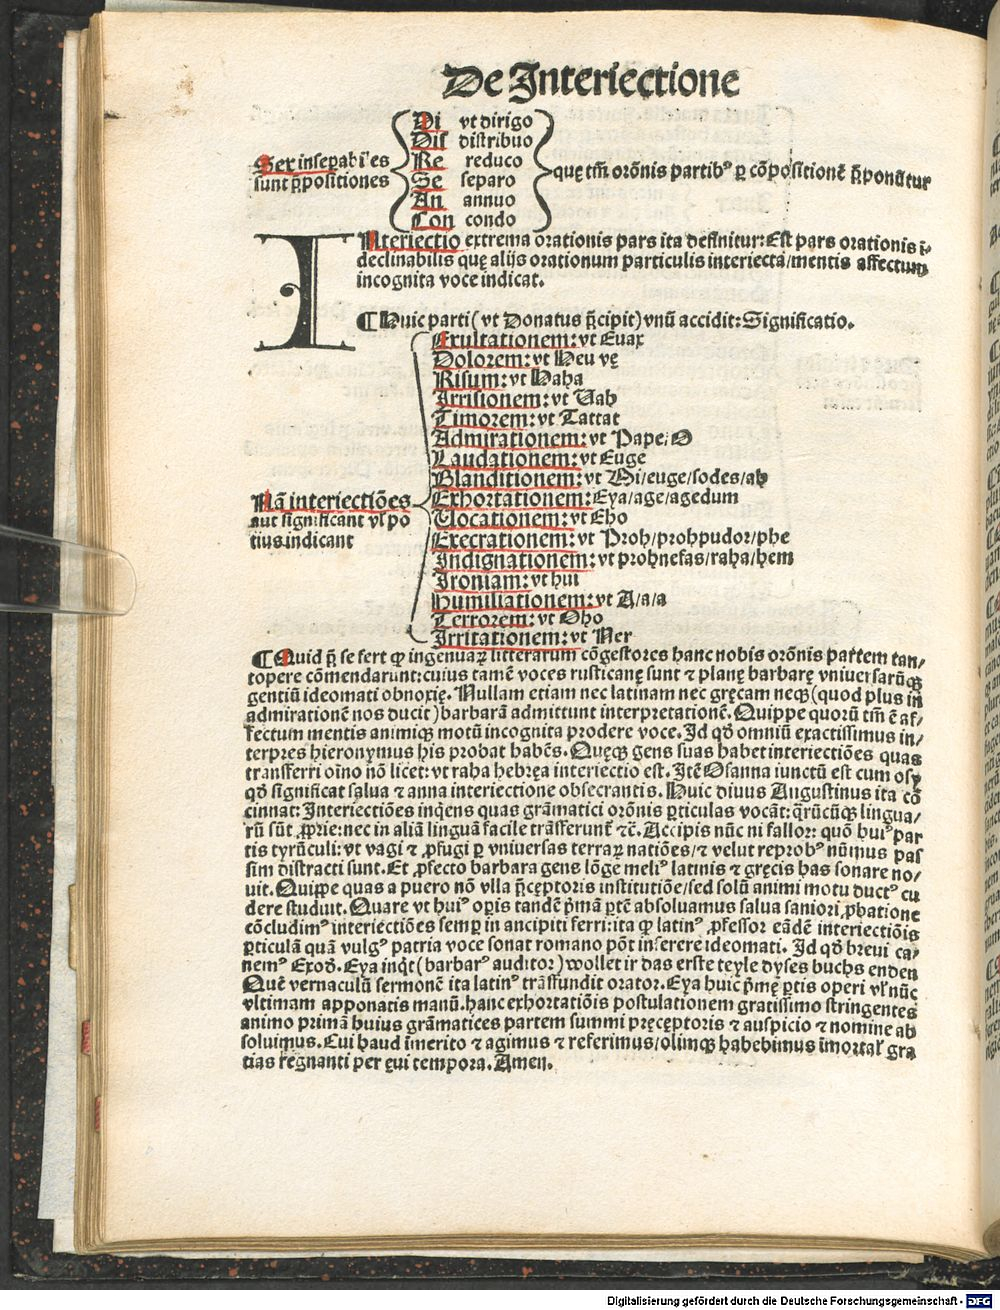 De Interiectione
Di vt dirigo
Dis distribuo
Re reduco
Se separo
An annuo
Con condo
Sex inseparabiles
sunt p̄positiones
quę tm̄ orōnis partibꝰ ꝑ cōpositionē p̄ponūtur
INteriectio extrema orationis pars ita definitur: Est pars orationis ī-
declinabilis quę alijs orationum particulis interiecta/mentis affectum
incognita voce indicat.
¶ Huic parti (vt Donatus p̄cipit) vnū accidit: Significatio.
Nā interiectiōes
aut significant vl̓ po
tius indicant
Exultationem: vt Euax
Dolorem: vt Heu vę
Risum: vt Haha
Irrisionem: vt Vah
Timorem: vt Tattat
Admirationem: vt Pape, O
Laudationem: vt Euge
Blanditionem: vt Hi/euge/sodes/ah
Exhortationem: Eya/age/agedum
Uocationem: vt Eho
Execrationem: vt Proh/prohpudor/phe
Indignationem: vt prohnefas/raha/hem
Ironiam: vt hui
Humiliationem: vt A/a/a
Terrorem: vt Oho
Irritationem: vt Ner
¶ Quid p̄ se fert ꝙ ingenuaꝝ litterarum cōgestores hanc nobis orōnis partem tan/
topere cōmendarunt: cuius tamē voces rusticanę sunt ⁊ planę barbarę vniuersarūqꝫ
gentiū ideomati obnoxię. Nullam etiam nec latinam nec gręcam neqꝫ (quod plus in
admirationē nos ducit) barbarā admittunt interpretationē. Quippe quorū tm̄ ē af/
fectum mentis animiqꝫ motū incognita prodere voce. Id qd̓ omniū exactissimus in/
terpres hieronymus his probat habēs. Quęqꝫ gens suas habet interiectiōes quas
transferri oīno nō licet: vt raha hebręa interiectio est. Itē Osanna iunctū est cum osy
qd̓ significat salua ⁊ anna interiectione obsecrantis. Huic diuus Augustinus ita cō
cinnat: Interiectiōes inq̄ens quas grāmatici orōnis ꝑticulas vocāt: q̄rūcūqꝫ lingua/
rū sūt ꝓprie: nec in aliā linguā facile trāsferunt̄ ⁊c̄. Accipis nūc ni fallor: quō huiꝰ par
tis tyrūculi: vt vagi ⁊ ꝓfugi ꝑ vniuersas terraꝝ natiōes/⁊ velut reprobꝰ nūmus pas
sim distracti sunt. Et ꝓfecto barbara gens lōge meliꝰ latinis ⁊ gręcis has sonare no/
uit. Quippe quas a puero nō vlla p̄ceptoris institutiōe/sed solū animi motu ductꝰ cu
dere studuit. Quare vt huiꝰ opis tandē p̄mā ꝑtē absoluamus salua saniori ꝓbatione
cōcludimꝰ interiectiōes semꝑ in ancipiti ferri: ita ꝙ latinꝰ ꝓfessor eādē interiectiōis
ꝑticulā quā vulgꝰ patria voce sonat romano pōt inserere ideomati. Id qd̓ breui ca/
nemꝰ Exod. Eya inq̄t (barbarꝰ auditor) wollet ir das erste teyle dyses buchs enden
Quē vernaculū sermonē ita latinꝰ trāsfundit orator. Eya huic p̄mę ꝑtis operi vl̓ nūc
vltimam apponatis manū. hanc exhortatiōis postulationem gratissimo stringentes
animo primā huius grāmatices partem summi pręceptoris ⁊ auspicio ⁊ nomine ab
soluimus. Cui haud īmerito ⁊ agimus ⁊ referimus/olimqꝫ habebimus īmortal̓ gra
tias regnanti per ęui tempora. Amen.
Digitalisierung gefördert durch die Deutsche Forschungsgemeinschaft - DFG